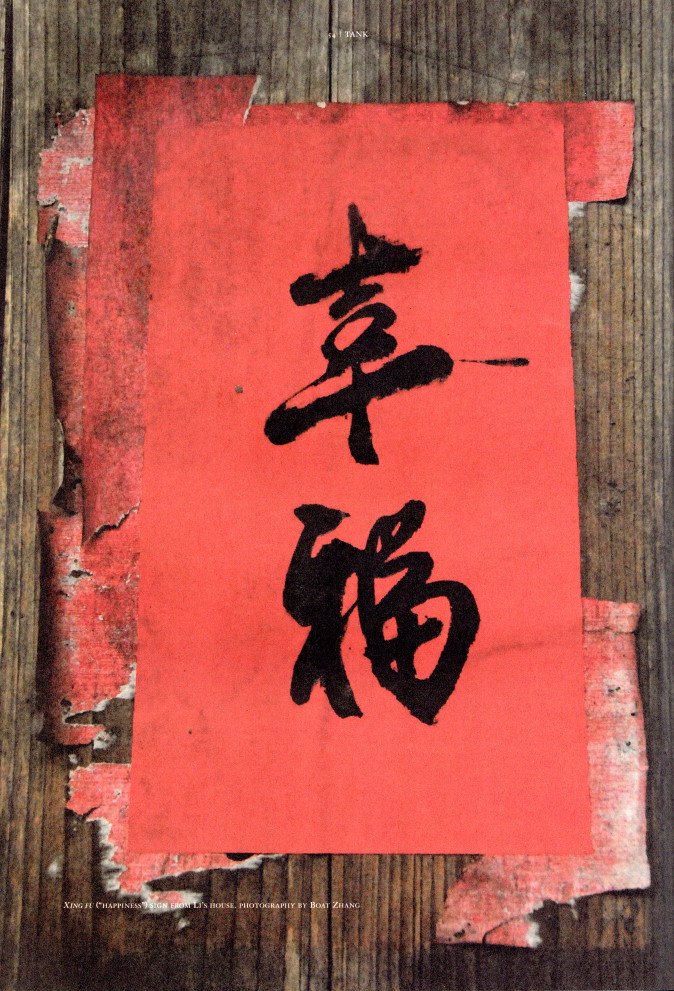 54 | TANK
幸
福
XING FU ("HAPPINESS") SIGN FROM LI'S HOUSE. PHOTOGRAPHY BY BOAT ZHANG